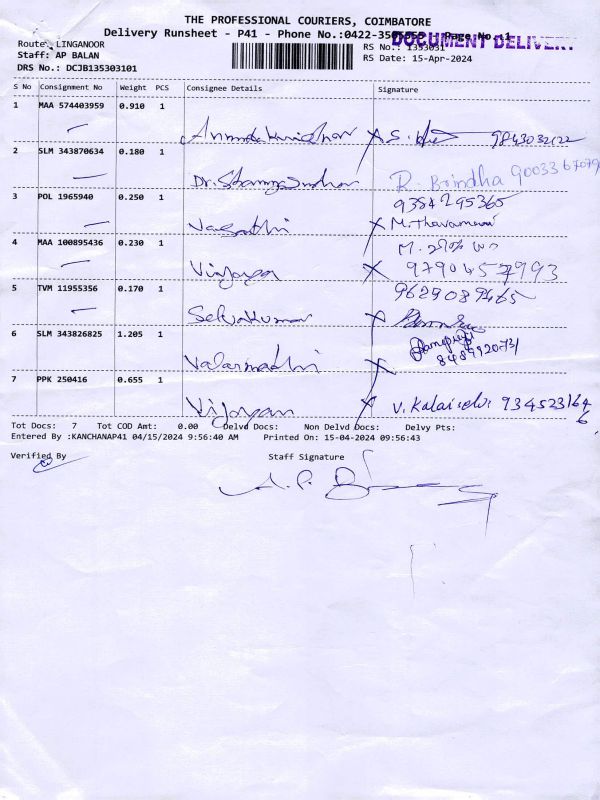 THE PROFESSIONAL COURIERS, COIMBATORE
Delivery Runsheet - P41 - Phone No.:0422- Page No.:1
DOCUMENT DELIVERY
Route: LINGANOOR RS No.: 1353031
Staff: AP BALAN RS Date: 15-Apr-2024
DRS No.: DCJB135303101
S No Consignment No Weight PCS Consignee Details Signature
1 MAA 574403959 0.910 1
2 SLM 343870634 0.180 1 R. Brindha
3 POL 1965940 0.250 1 9384295365
M. Thavamani
4 MAA 100895436 0.230 1 Vijayan 9790457993
5 TVM 11955356 0.170 1 Selvakumar
6 SLM 343826825 1.205 1 Valarmadhi
7 PPK 250416 0.655 1 Vijayan V. Kalaiselvi 9345231646
Tot Docs: 7 Tot COD Amt: 0.00 Delvd Docs: Non Delvd Docs: Delvy Pts:
Entered By :KANCHANAP41 04/15/2024 9:56:40 AM Printed On: 15-04-2024 09:56:43
Verified By Staff Signature